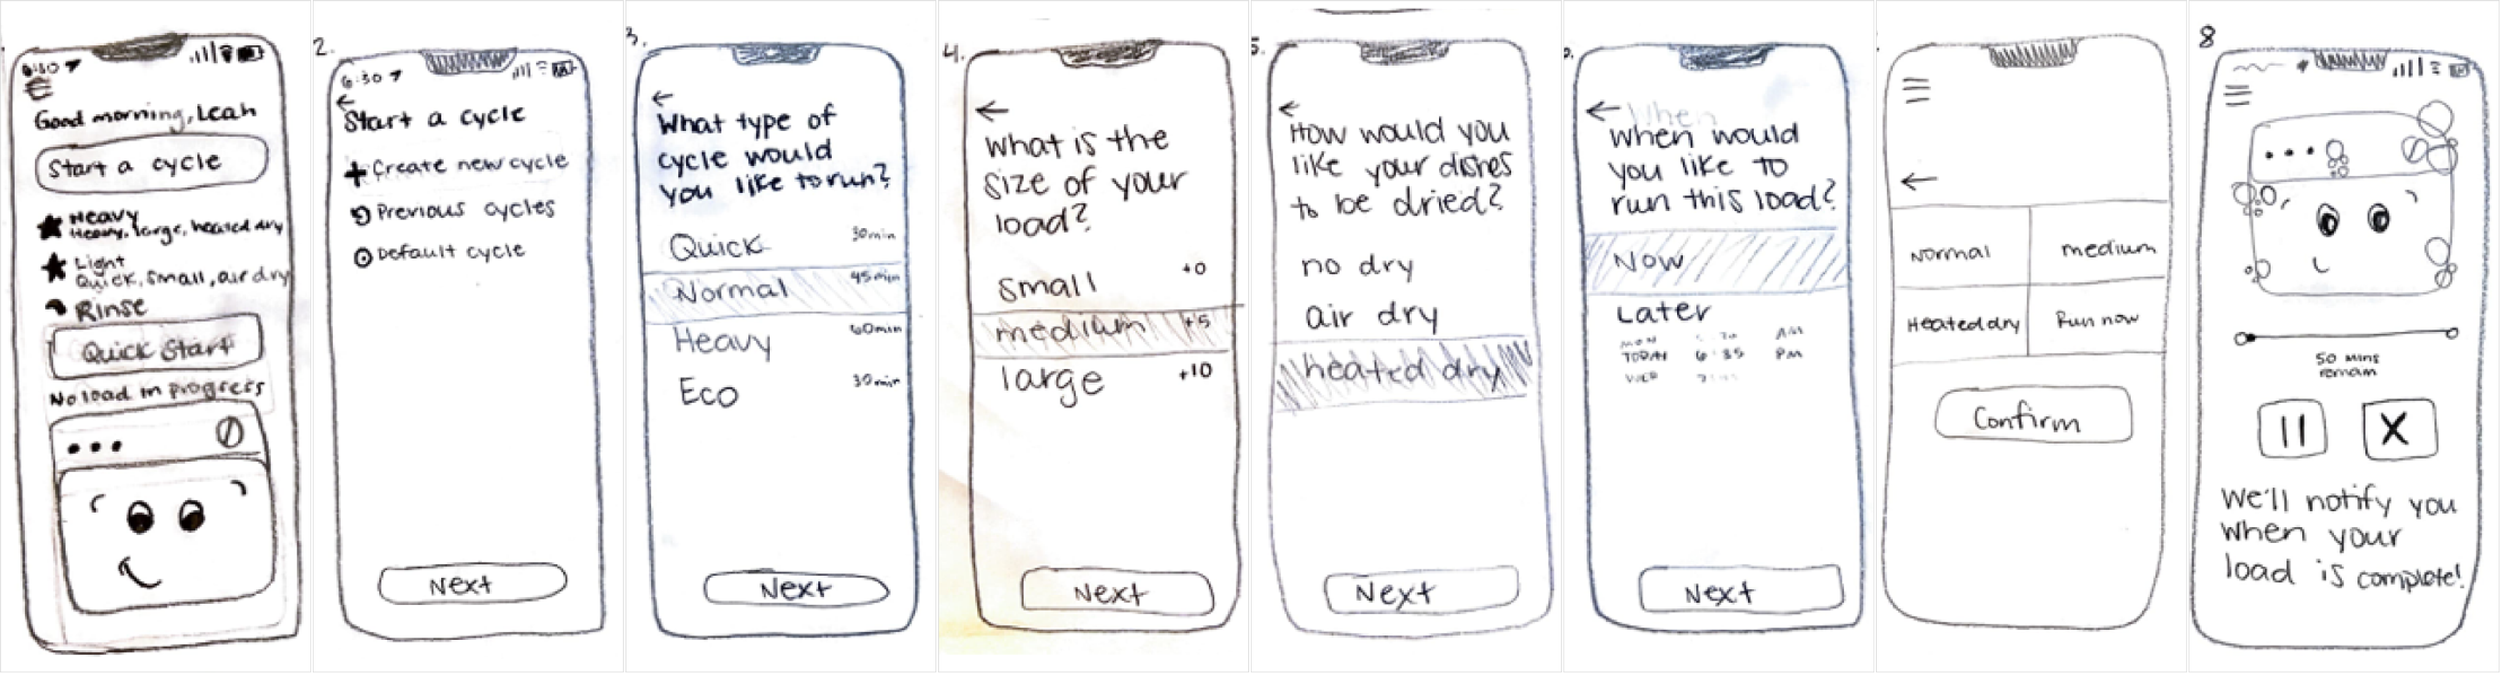 6:30
Good morning, Leah
Start a cycle
Heavy
Heavy, large, heated dry
Light
Quick, small, air dry
Rinse
Quick Start
No load in progress
2.
6:30
Start a cycle
Create new cycle
Previous cycles
Default cycle
Next
3.
What type of
cycle would
you like to run?
Quick 30min
Normal 45min
Heavy 60min
Eco 30min
Next
4.
What is the
size of your
load?
small +0
medium +5
large +10
Next
5.
How would you
like your dishes
to be dried?
no dry
air dry
heated dry
Next
When
When would
you like to
run this load?
Now
Later
MON AM
TODAY 6:35 PM
WED
Next
Normal medium
Heated dry Run now
Confirm
8
50 mins
remain
X
We'll notify you
when your
load is complete!